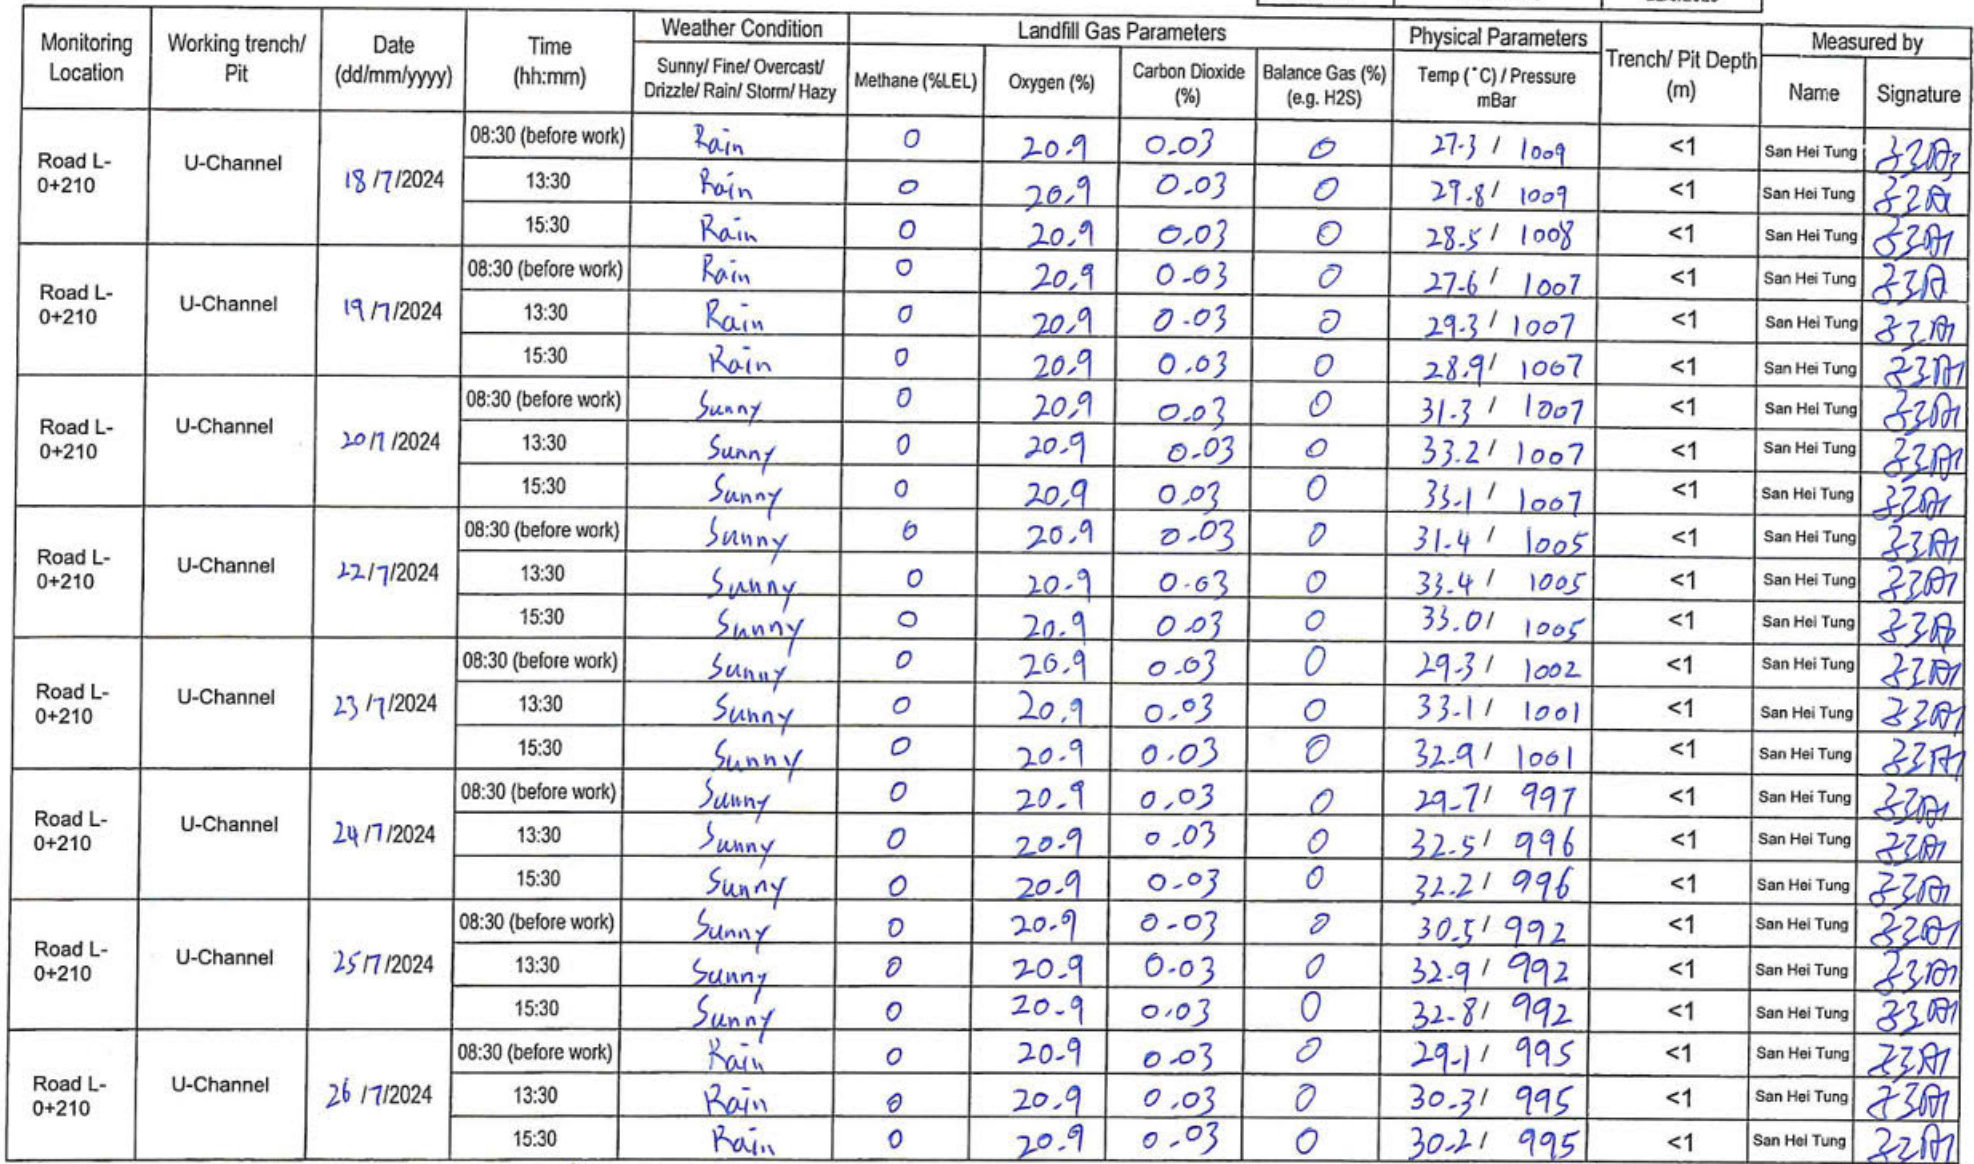 Monitoring Location | Working trench/ Pit | Date (dd/mm/yyyy) | Time (hh:mm) | Weather Condition | Landfill Gas Parameters | Physical Parameters | Trench/ Pit Depth (m) | Measured by
Sunny/ Fine/ Overcast/ Drizzle/ Rain/ Storm/ Hazy | Methane (%LEL) | Oxygen (%) | Carbon Dioxide (%) | Balance Gas (%) (e.g. H2S) | Temp (˚C) / Pressure mBar | Name | Signature
Road L-0+210 | U-Channel | 18/7/2024 | 08:30 (before work) | Rain | 0 | 20.9 | 0.03 | 0 | 27.3 / 1009 | <1 | San Hei Tung
13:30 | Rain | 0 | 20.9 | 0.03 | 0 | 29.8 / 1009 | <1 | San Hei Tung
15:30 | Rain | 0 | 20.9 | 0.03 | 0 | 28.5 / 1008 | <1 | San Hei Tung
Road L-0+210 | U-Channel | 19/7/2024 | 08:30 (before work) | Rain | 0 | 20.9 | 0.03 | 0 | 27.6 / 1007 | <1 | San Hei Tung
13:30 | Rain | 0 | 20.9 | 0.03 | 0 | 29.3 / 1007 | <1 | San Hei Tung
15:30 | Rain | 0 | 20.9 | 0.03 | 0 | 28.9 / 1007 | <1 | San Hei Tung
Road L-0+210 | U-Channel | 20/7/2024 | 08:30 (before work) | Sunny | 0 | 20.9 | 0.03 | 0 | 31.3 / 1007 | <1 | San Hei Tung
13:30 | Sunny | 0 | 20.9 | 0.03 | 0 | 33.2 / 1007 | <1 | San Hei Tung
15:30 | Sunny | 0 | 20.9 | 0.03 | 0 | 33.1 / 1007 | <1 | San Hei Tung
Road L-0+210 | U-Channel | 22/7/2024 | 08:30 (before work) | Sunny | 0 | 20.9 | 0.03 | 0 | 31.4 / 1005 | <1 | San Hei Tung
13:30 | Sunny | 0 | 20.9 | 0.03 | 0 | 33.4 / 1005 | <1 | San Hei Tung
15:30 | Sunny | 0 | 20.9 | 0.03 | 0 | 33.0 / 1005 | <1 | San Hei Tung
Road L-0+210 | U-Channel | 23/7/2024 | 08:30 (before work) | Sunny | 0 | 20.9 | 0.03 | 0 | 29.3 / 1002 | <1 | San Hei Tung
13:30 | Sunny | 0 | 20.9 | 0.03 | 0 | 33.1 / 1001 | <1 | San Hei Tung
15:30 | Sunny | 0 | 20.9 | 0.03 | 0 | 32.9 / 1001 | <1 | San Hei Tung
Road L-0+210 | U-Channel | 24/7/2024 | 08:30 (before work) | Sunny | 0 | 20.9 | 0.03 | 0 | 29.7 / 997 | <1 | San Hei Tung
13:30 | Sunny | 0 | 20.9 | 0.03 | 0 | 32.5 / 996 | <1 | San Hei Tung
15:30 | Sunny | 0 | 20.9 | 0.03 | 0 | 32.2 / 996 | <1 | San Hei Tung
Road L-0+210 | U-Channel | 25/7/2024 | 08:30 (before work) | Sunny | 0 | 20.9 | 0.03 | 0 | 30.5 / 992 | <1 | San Hei Tung
13:30 | Sunny | 0 | 20.9 | 0.03 | 0 | 32.9 / 992 | <1 | San Hei Tung
15:30 | Sunny | 0 | 20.9 | 0.03 | 0 | 32.8 / 992 | <1 | San Hei Tung
Road L-0+210 | U-Channel | 26/7/2024 | 08:30 (before work) | Rain | 0 | 20.9 | 0.03 | 0 | 29.1 / 995 | <1 | San Hei Tung
13:30 | Rain | 0 | 20.9 | 0.03 | 0 | 30.3 / 995 | <1 | San Hei Tung
15:30 | Rain | 0 | 20.9 | 0.03 | 0 | 30.2 / 995 | <1 | San Hei Tung